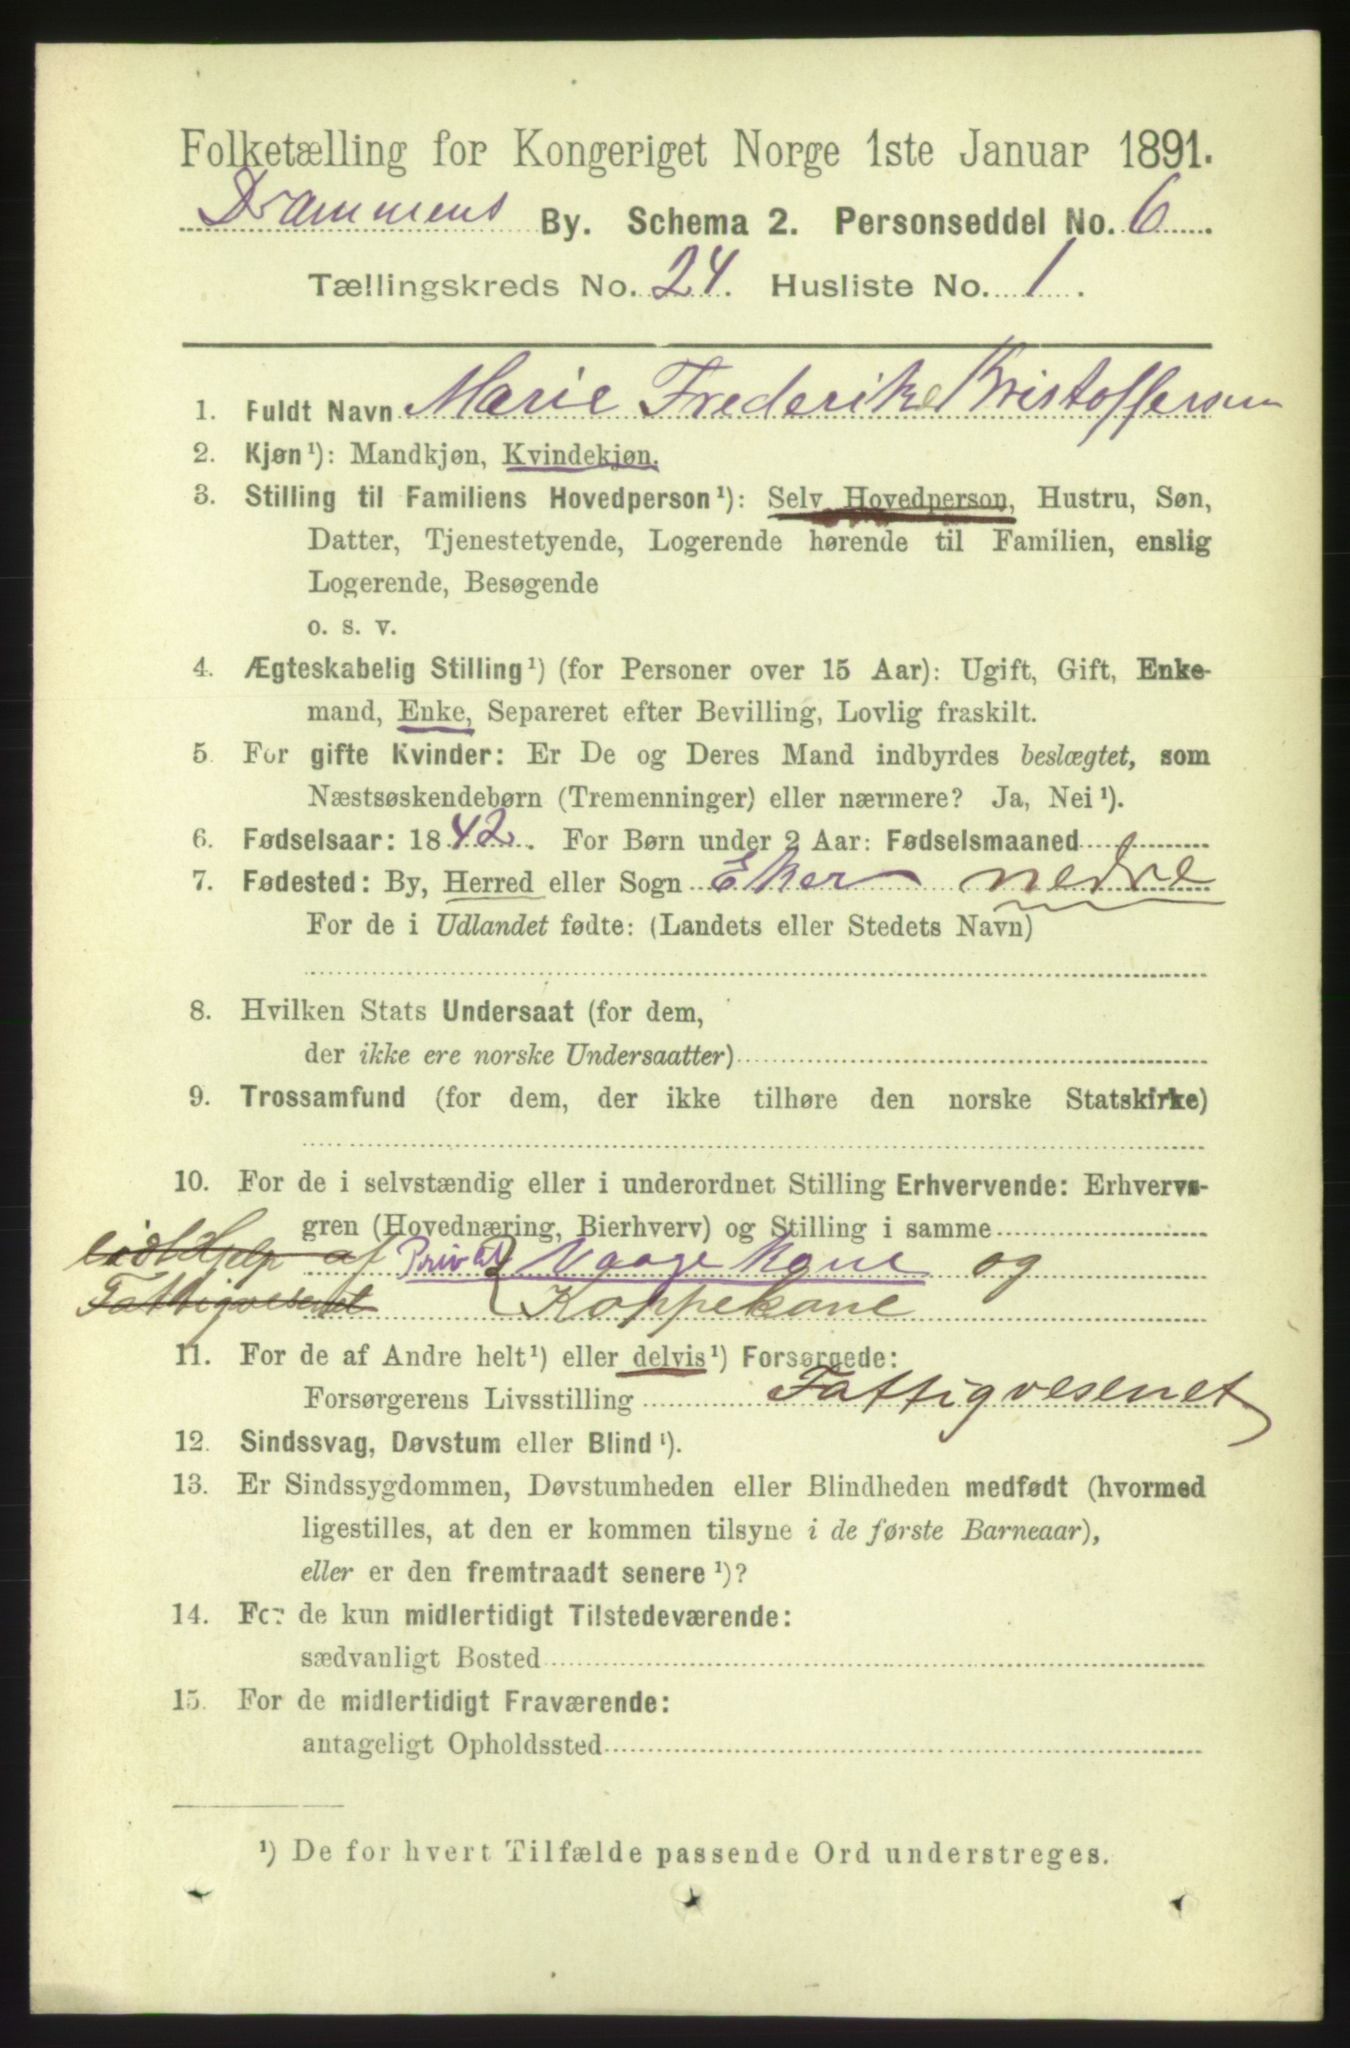 Folketælling for Kongeriget Norge 1ste Januar 1891.
Drammens By. Schema 2. Personseddel No. 6
Tællingskreds No. 24. Husliste No. 1.
1. Fuldt Navn Marie Frederike Kristoffersen
2. Kjøn¹): Mandkjøn, Kvindekjøn.
3. Stilling til Familiens Hovedperson¹): Selv Hovedperson, Hustru, Søn,
Datter, Tjenestetyende, Logerende hørende til Familien, enslig
Logerende, Besøgende
o. s. v.
4. Ægteskabelig Stilling¹) (for Personer over 15 Aar): Ugift, Gift, Enke-
mand, Enke, Separeret efter Bevilling, Lovlig fraskilt.
5. For gifte Kvinder: Er De og Deres Mand indbyrdes beslægtet, som
Næstsøskendebørn (Tremenninger) eller nærmere? Ja, Nei¹).
6. Fødselsaar: 1842. For Børn under 2 Aar: Fødselsmaaned
7. Fødested: By, Herred eller Sogn Eker nedre
For de i Udlandet fødte: (Landets eller Stedets Navn)
8. Hvilken Stats Undersaat (for dem,
der ikke ere norske Undersaatter)
9. Trossamfund (for dem, der ikke tilhøre den norske Statskirke)
10. For de i selvstændig eller i underordnet Stilling Erhvervende: Erhvervs-
gren (Hovednæring, Bierhverv) og Stilling i samme
Hjelp af Privat Vaagekone og
Fattigvesenet Koppekone
11. For de af Andre helt¹) eller delvis¹) Forsørgede:
Forsørgerens Livsstilling Fattigvesenet
12. Sindssvag, Døvstum eller Blind¹).
13. Er Sindssygdommen, Døvstumheden eller Blindheden medfødt (hvormed
ligestilles, at den er kommen tilsyne i de første Barneaar),
eller er den fremtraadt senere¹)?
14. For de kun midlertidigt Tilstedeværende:
sædvanligt Bosted
15. For de midlertidigt Fraværende:
antageligt Opholdssted
¹) De for hvert Tilfælde passende Ord understreges.